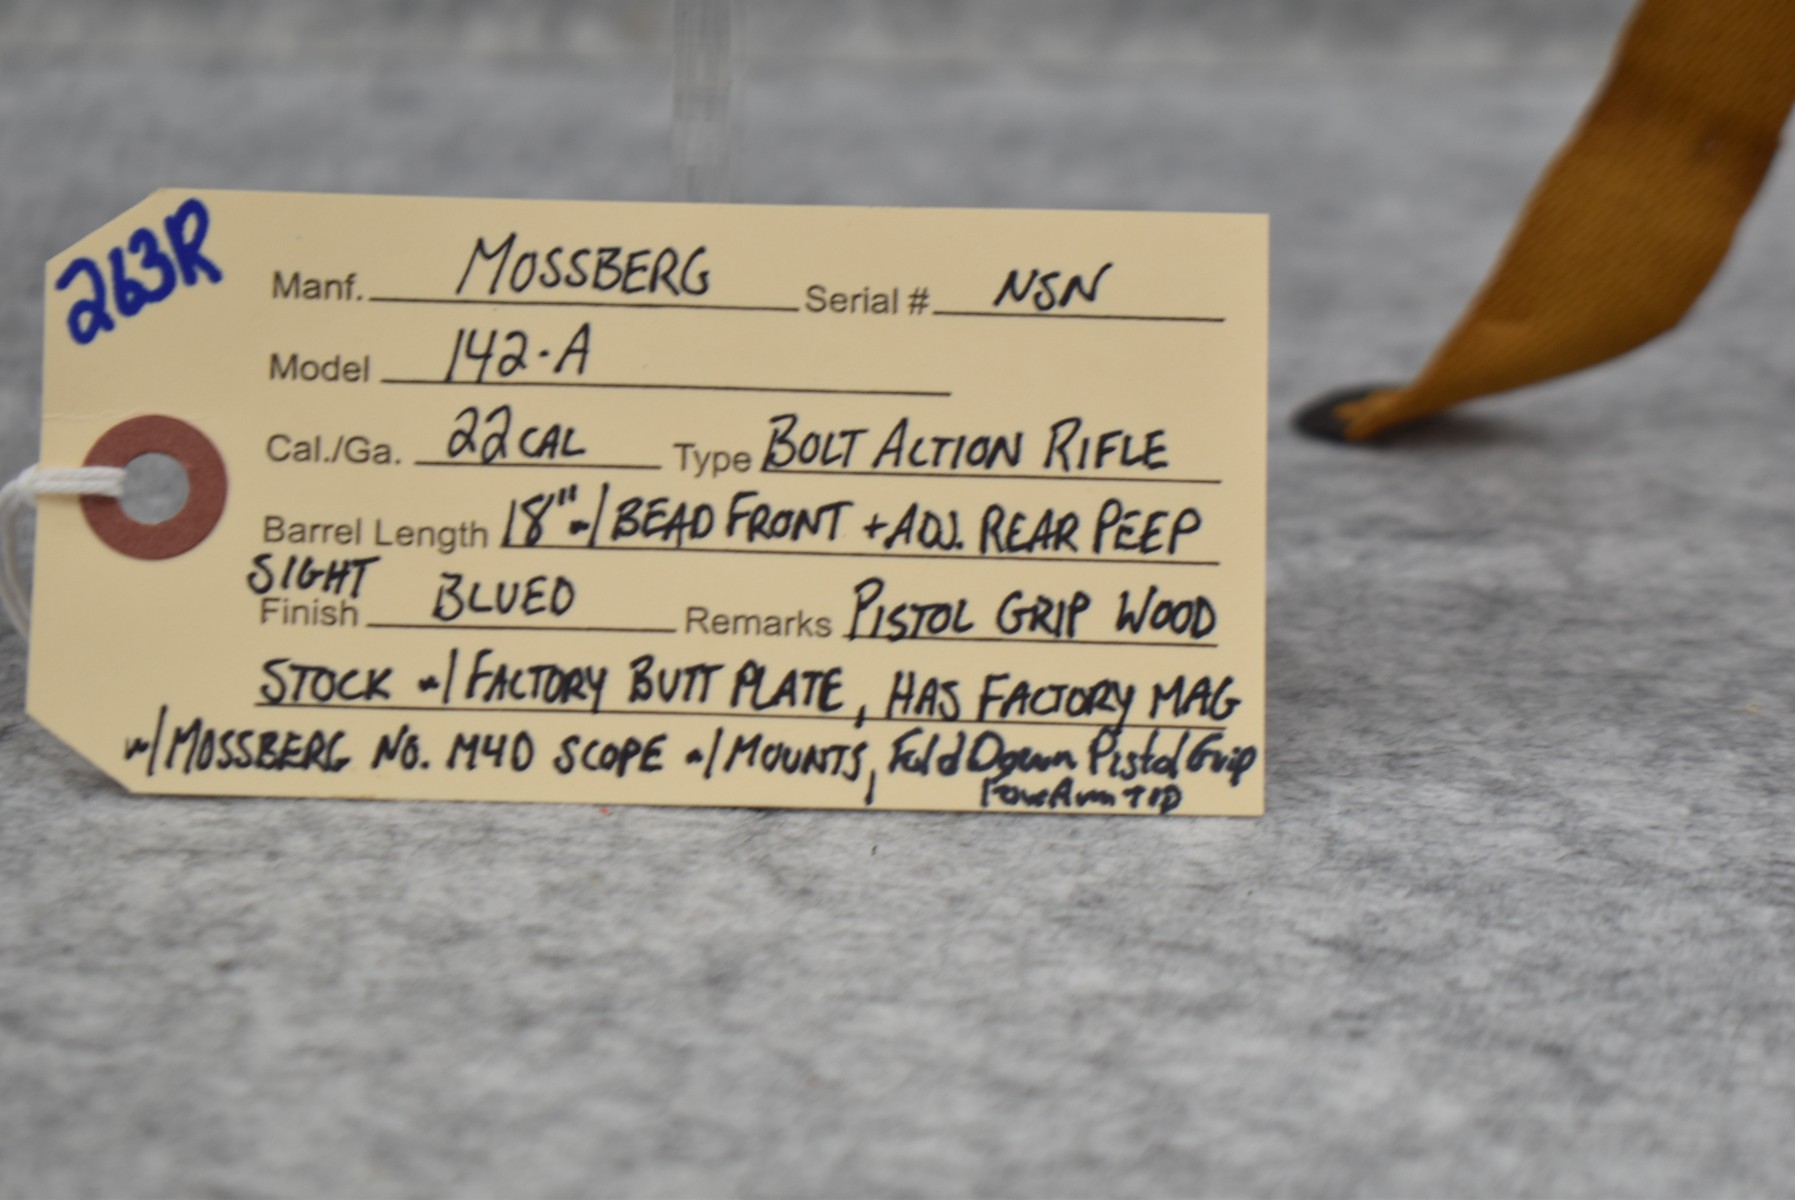 263R
Manf. MOSSBERG Serial # NSN
Model 142-A
Cal./Ga. 22 CAL Type BOLT ACTION RIFLE
Barrel Length 18" w/ BEAD FRONT + ADJ. REAR PEEP
SIGHT
Finish BLUED Remarks PISTOL GRIP WOOD
STOCK w/ FACTORY BUTT PLATE, HAS FACTORY MAG
w/ MOSSBERG NO. M4D SCOPE w/ MOUNTS, Fold Down Pistol Grip
ForeArm TIP